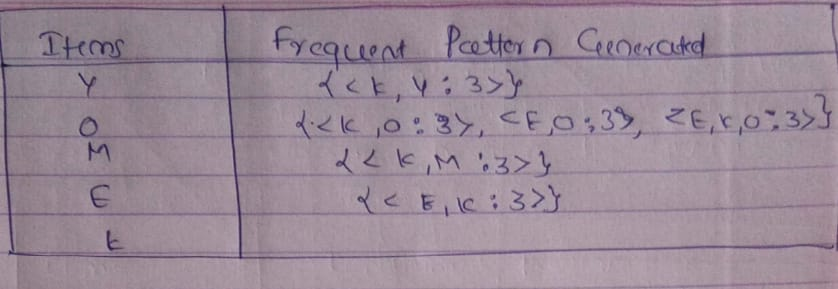 Items Frequent Pattern Generated
Y {<K, Y : 3>}
O {<K, O : 3>, <E, O : 3>, <E, K, O : 3>}
M {< K, M : 3>}
E {< E, K : 3>}
K